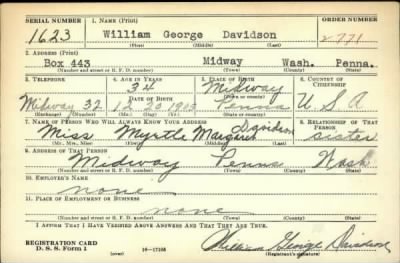 SERIAL NUMBER 1. NAME (Print) ORDER NUMBER
1623 William George Davidson 2771
(First) (Middle) (Last)
2. ADDRESS (Print)
Box 443 Midway Wash. Penna.
(Number and street or R. F. D. number) (Town) (County) (State)
3. TELEPHONE 4. AGE IN YEARS 5. PLACE OF BIRTH 6. COUNTRY OF CITIZENSHIP
34 Midway
DATE OF BIRTH (Town or county)
Midway 32 12 20 Penna U.S.A
(Exchange) (Number) (Mo.) (Day) (Yr.) (State or country)
7. NAME OF PERSON WHO WILL ALWAYS KNOW YOUR ADDRESS 8. RELATIONSHIP OF THAT PERSON
Miss Myrtle Margaret Davidson sister
(Mr., Mrs., Miss) (First) (Middle) (Last)
9. ADDRESS OF THAT PERSON
Midway Penna Wash
(Number and street or R. F. D. number) (Town) (County) (State)
10. EMPLOYER'S NAME
none
11. PLACE OF EMPLOYMENT OR BUSINESS
none
(Number and street or R. F. D. number) (Town) (County) (State)
I AFFIRM THAT I HAVE VERIFIED ABOVE ANSWERS AND THAT THEY ARE TRUE.
REGISTRATION CARD
D. S. S. Form 1 (over) William George Davidson
(Registrant's signature)